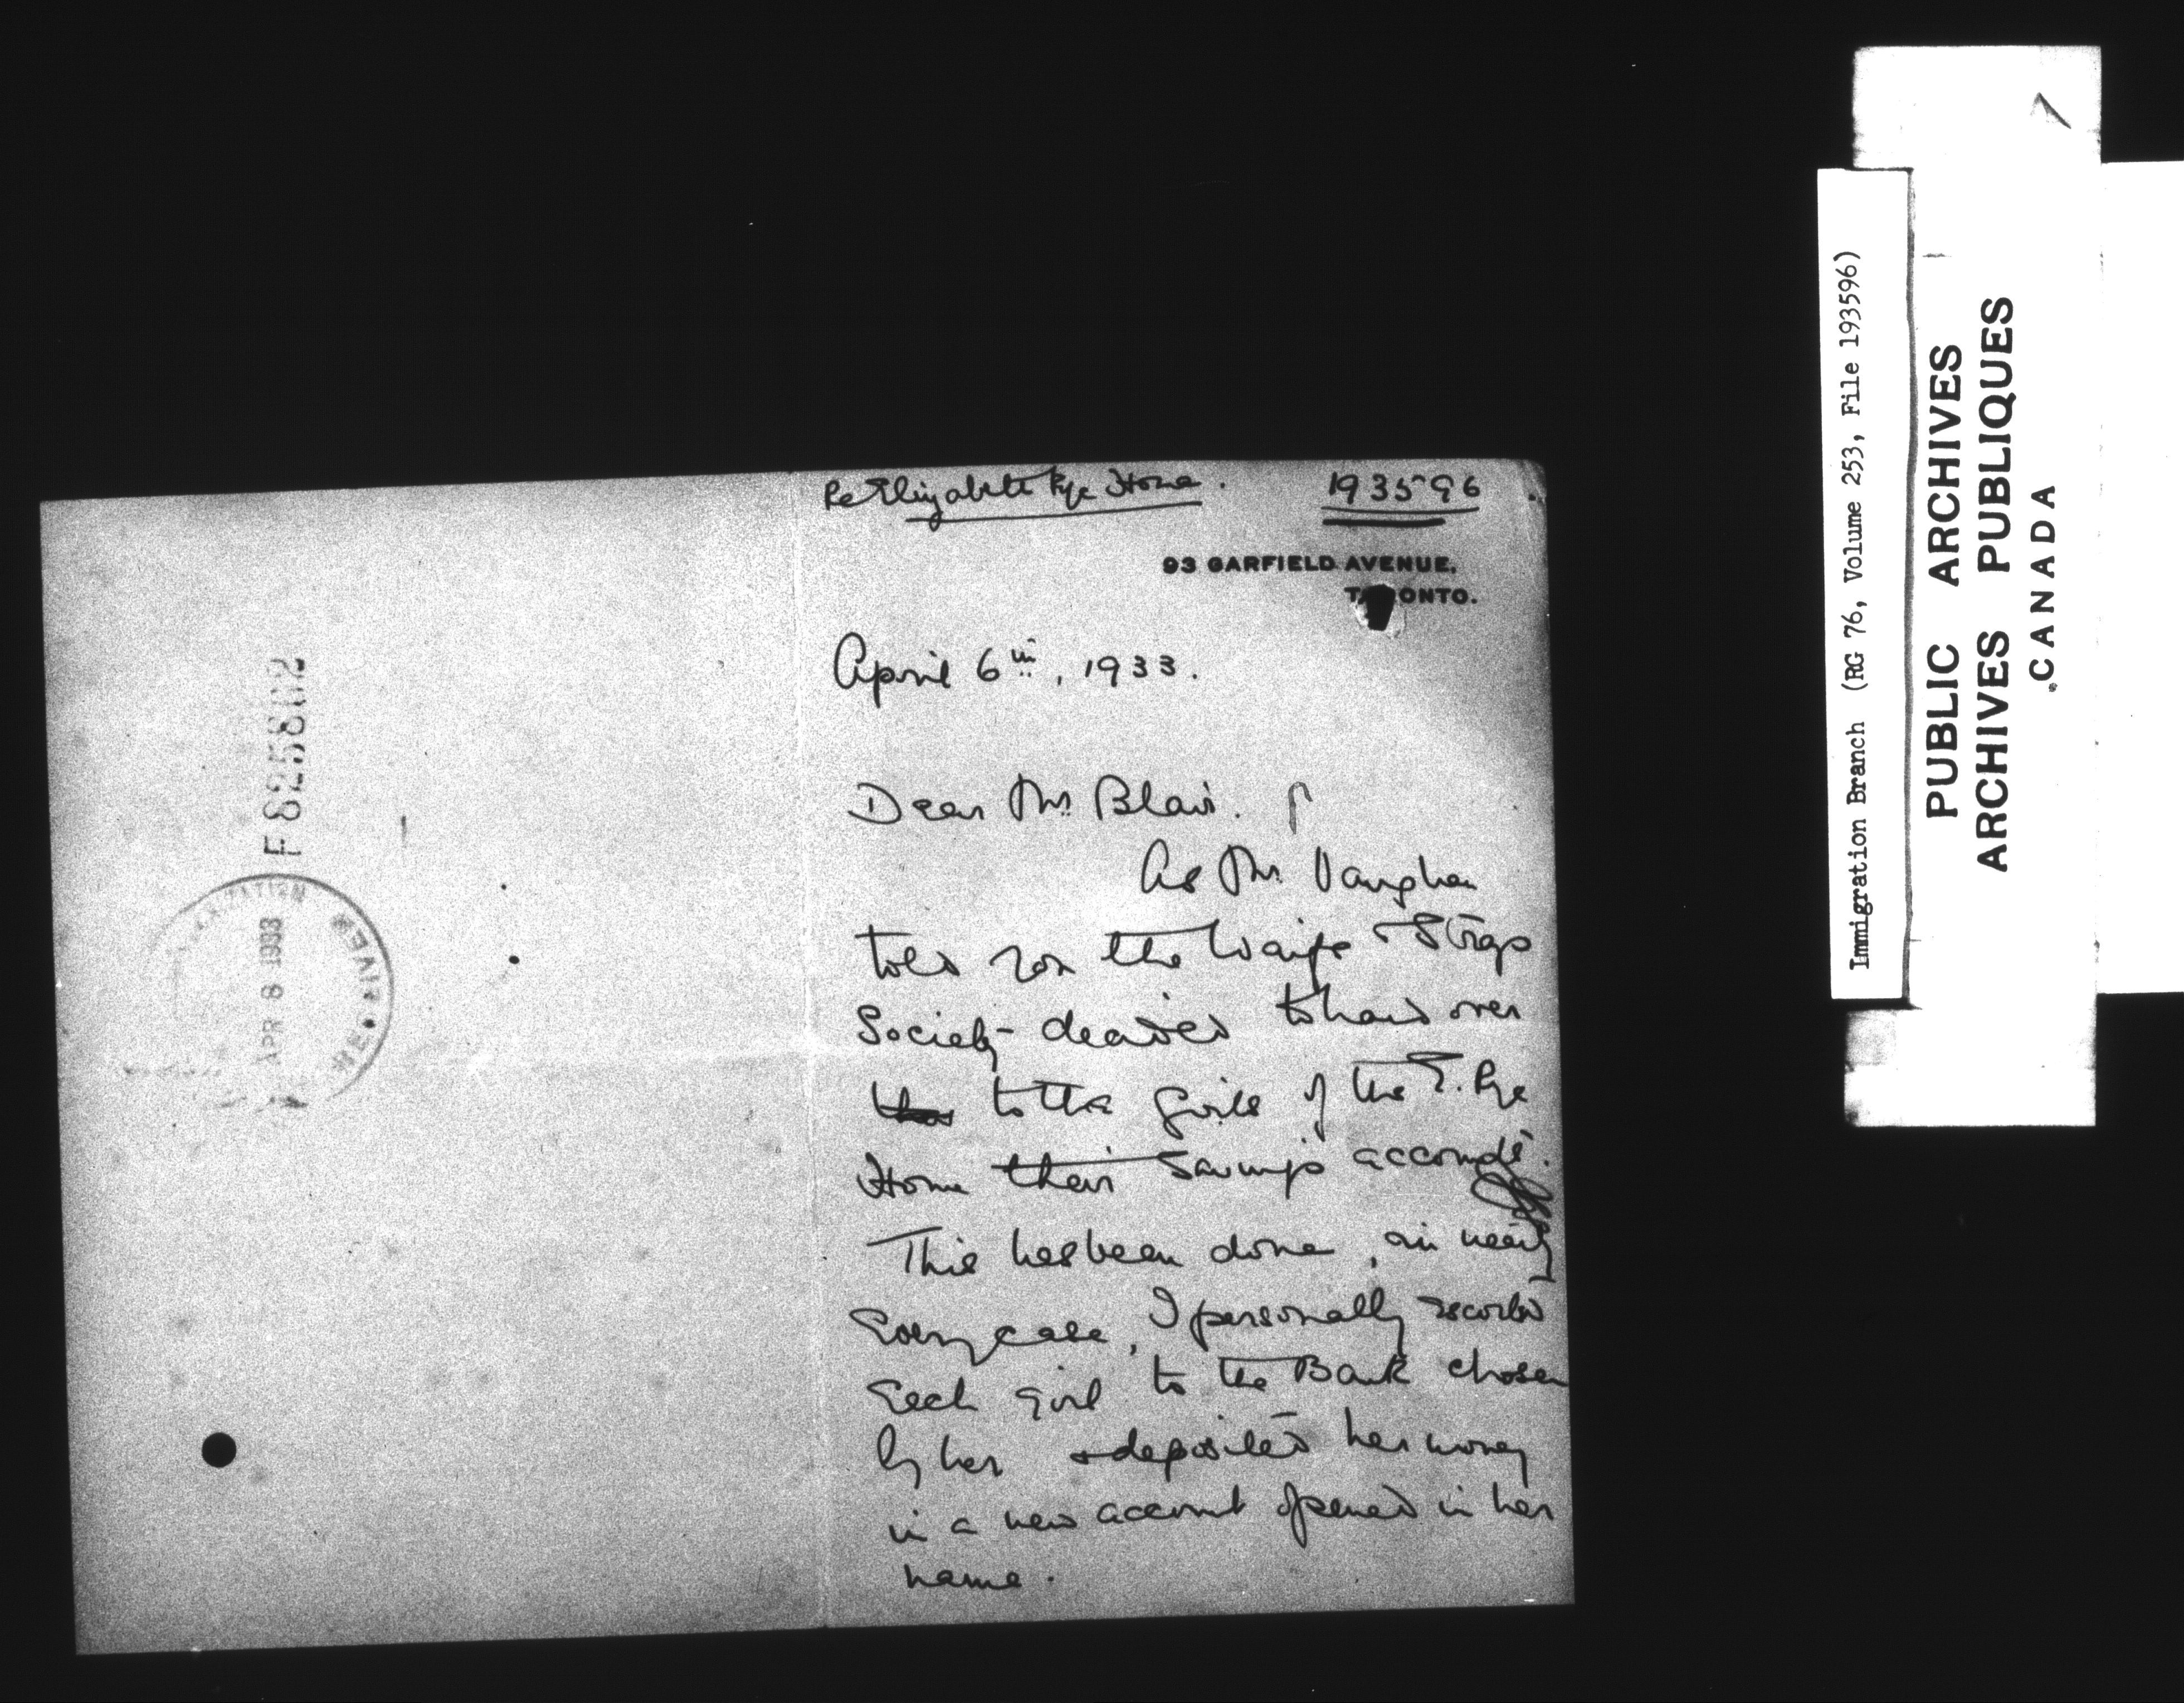 Re Elizabeth Rye Home.
193596
93 GARFIELD AVENUE,
TORONTO.
April 6th, 1933.
Dear Mr. Blair.
As Mr. Vaughan
told you the Waifs & Strays
Society desired to hand over
to the girls of the E. Rye
Home their savings accounts.
This has been done, in nearly
every case, I personally escorted
each girl to the Bank chosen
by her & deposited her money
in a new account opened in her
name.
F 825802
APR 8 1933
Immigration Branch (RG 76, Volume 253, File 193596)
PUBLIC ARCHIVES
ARCHIVES PUBLIQUES
CANADA